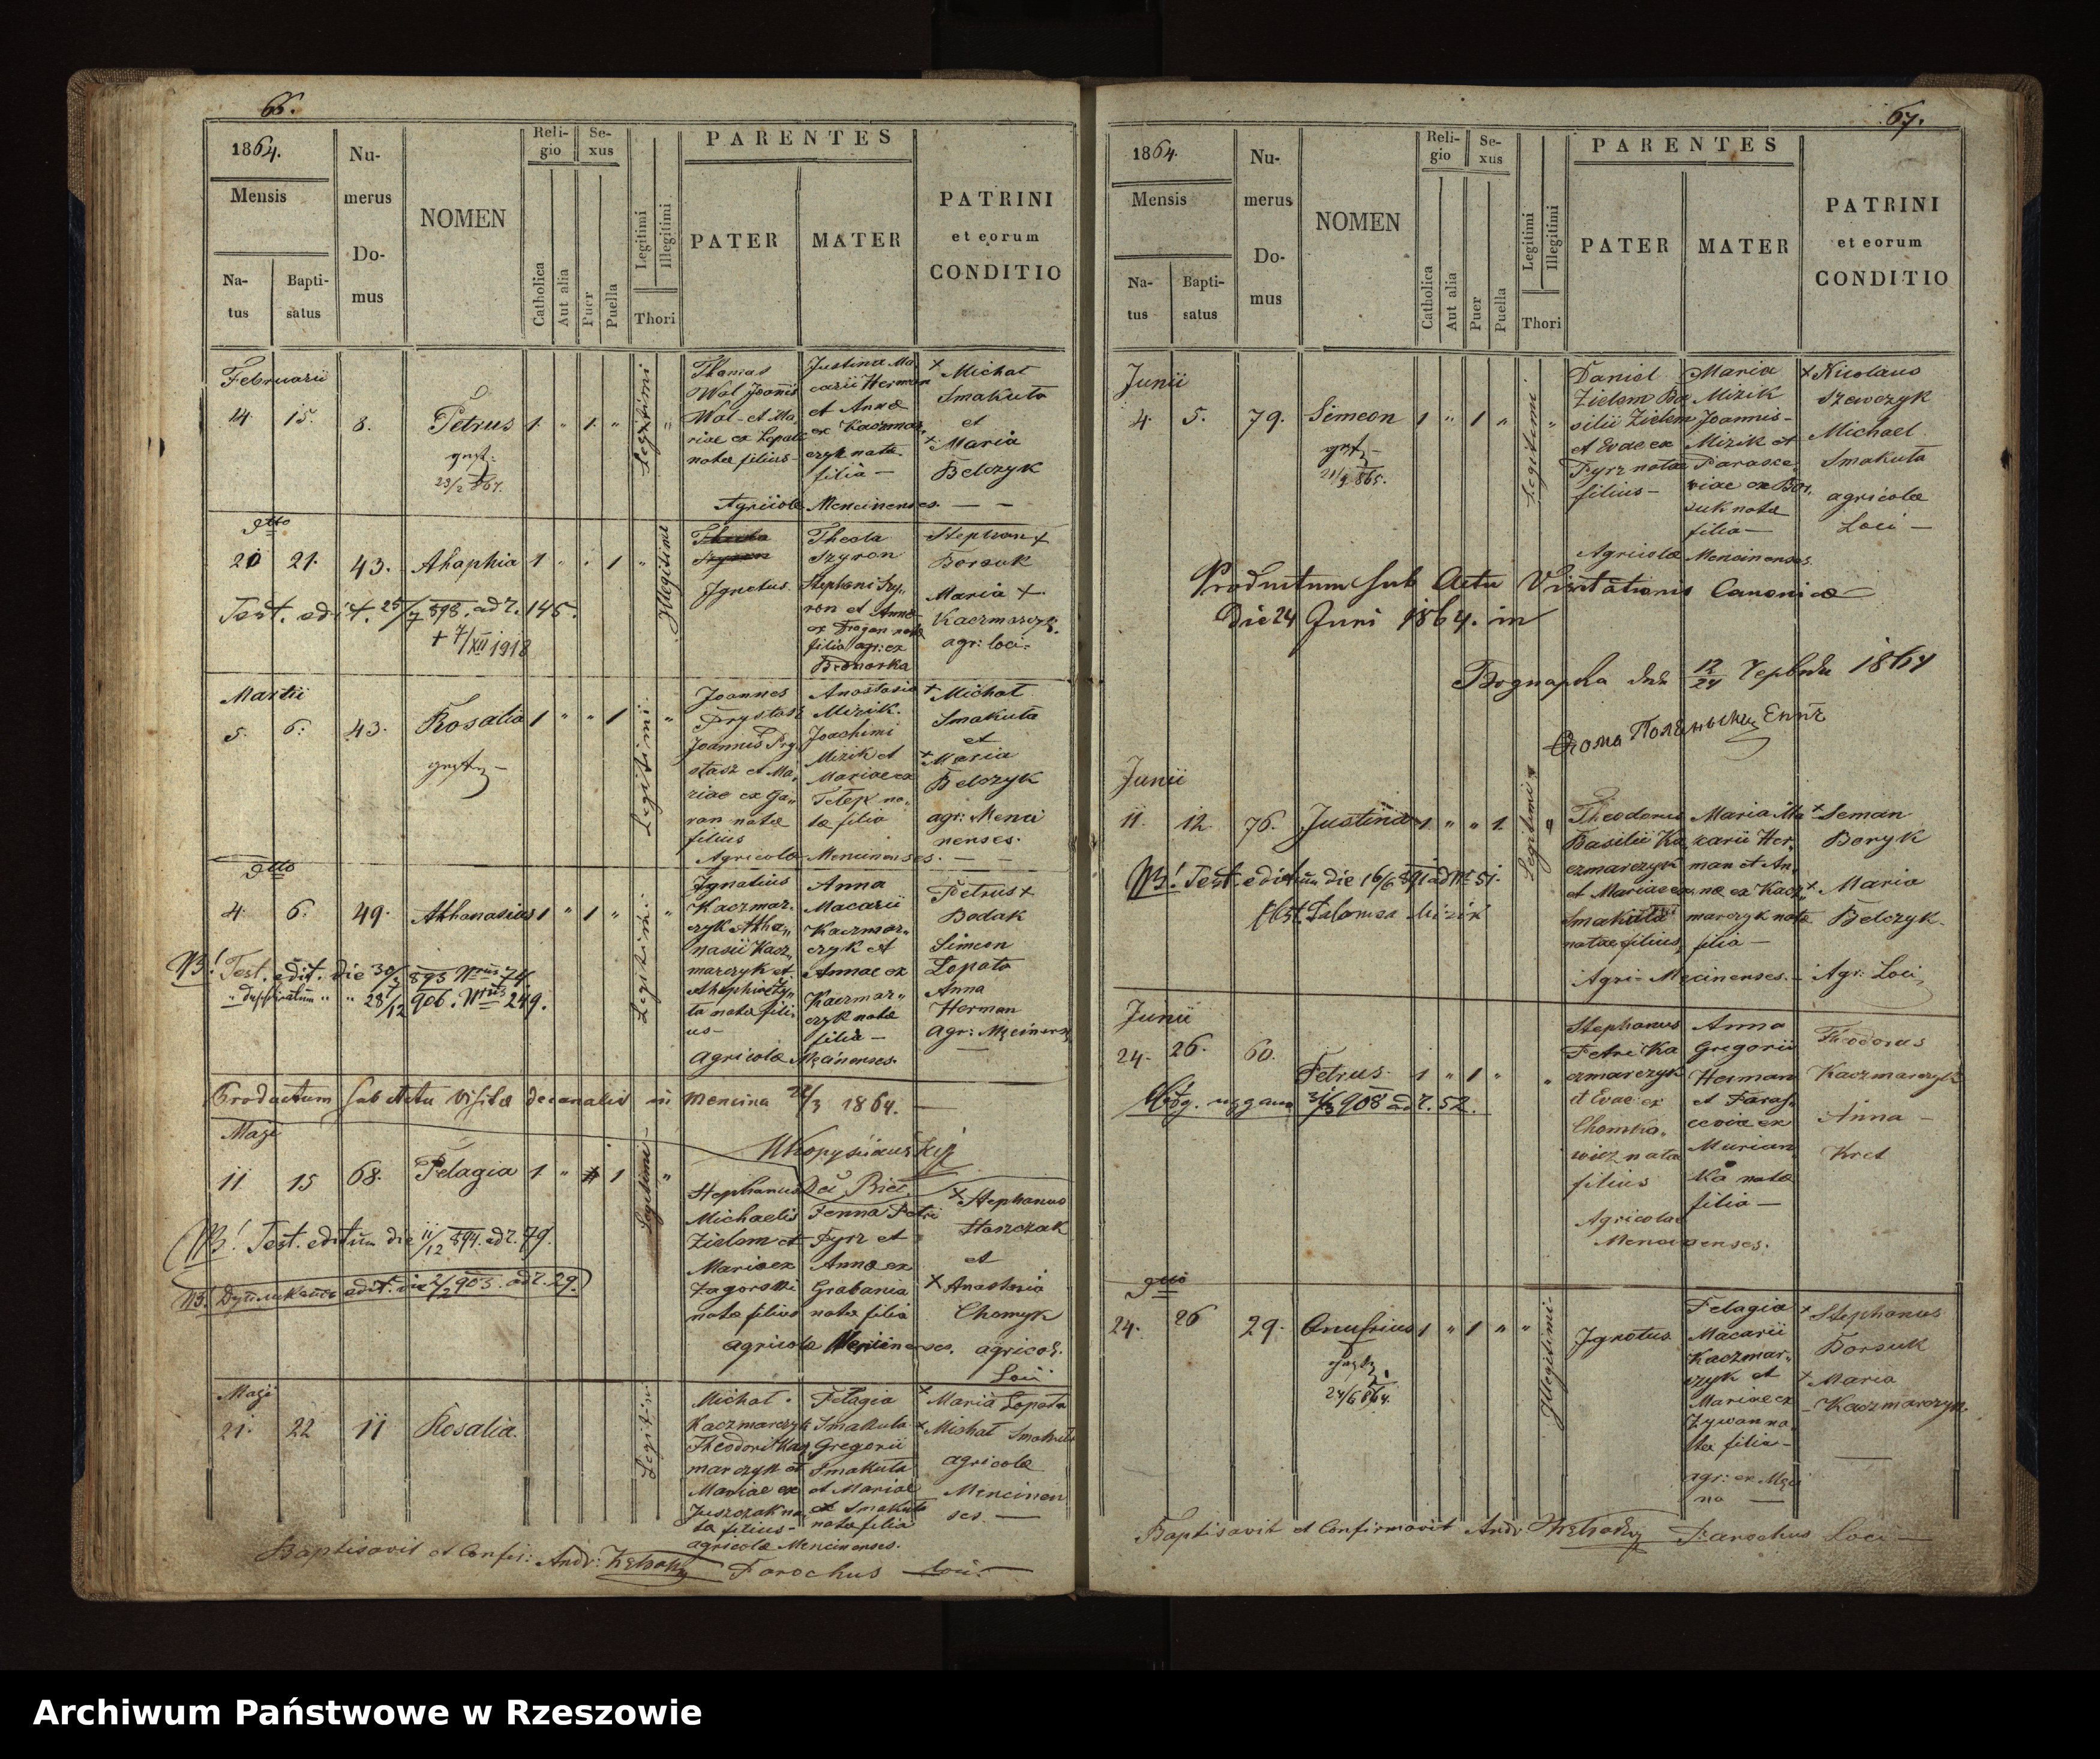 66.
1864.
Mensis
Na-
tus
Bapti-
satus
Nu-
merus
Do-
mus
NOMEN
Reli-
gio
Catholica
Aut alia
Se-
xus
Puer
Puella
Legitimi
Illegitimi
Thori
PARENTES
PATER
MATER
PATRINI
et eorum
CONDITIO
Februarii
14. 15. 8. Petrus 1 " 1 "
Legitimi
Thomas
Wal Joannis
Wal et Ma,
riae ex Lopata
natae filius
Justina Ma
carii Herman
et Annae
ex Kaczmar,
czyk nata
filia
+ Michał
Smakuła
et
+ Maria
Belczyk
Agricolae Mencinenses.
dtto
20 21. 43. Ahaphia 1 " " 1 "
Illegitimi
Ignotus
Thecla
Szyron
Stephani Szy,
ron et Annae
ex Dragan natae
filia agr: ex
Bednarka
Stephan +
Borsuk
Maria +
Kaczmarczyk
agr: loci.
Test. edit. 25/7 898. ad N. 145.
+ 7/XII 1918
Martii
5. 6. 43. Rosalia 1 " " 1
Legitimi
Joannes
Prystasz
Joannis Pry,
stasz et Ma,
riae ex Ga,,
ran natae
filius
Anastasia
Mizik.
Joachimi
Mizik et
Mariae ex
Telep na,,
tae filia
+ Michał
Smakuła
et
+ Maria
Belczyk
agr: Menci
nenses.
Agricolae Mencinenses.
dtto
4. 6. 49. Athanasius 1 " 1 "
Legitimi
Ignatius
Kaczmar,
czyk Atha,,
nasii Kacz,,
marczyk et
natae fili,
us
Anna
Macarii
Kaczmar,,
czyk et
Annae ex
Kaczmar,,
czyk natae
filia
Petrus +
Bodak
Simeon
Lopata
Anna
Herman
Agricolae Męcinenses.
NB! Test. edit. die 30/3 893 Nrus 74.
" duplicatum " " 28/12 906. Nrus 249.
Productum sub Actu Visitae decanalis in Mencina 22/3 1864.
Maji
11 15 68. Pelagia 1 " 1
Legitimi
Stephanus
Michaelis
Zielam et
Mariae ex
Zagorski
natae filius
Fenna Petri
Pyrz et
Annae ex
Grabania
natae filia
+ Stephanus
Haszczak
et
+ Anastasia
Chomyk
agricolae Mencinenses. agricol.
Loci
NB! Test. editum die 11/12 894. ad N. 79.
NB! Дупликатъ edit. die 2/2 903. ad N. 29.
Maji
21. 22 11 Rosalia.
Legitimi
Michał
Kaczmarczyk
Theodori Kacz
marczyk et
Mariae ex
Juszczak na,
tae filius
Pelagia
Smakuła
Gregorii
Smakuła
et Mariae
ex Smakuła
natae filia
+ Maria Lopata
+ Michał Smakuła
agricolae
Mencinen
ses.
agricolae Mencinenses.
Baptisavit et Confir: Andr: Parochus Loci.
67.
1864.
Mensis
Na-
tus
Bapti-
satus
Nu-
merus
Do-
mus
NOMEN
Reli-
gio
Catholica
Aut alia
Se-
xus
Puer
Puella
Legitimi
Illegitimi
Thori
PARENTES
PATER
MATER
PATRINI
et eorum
CONDITIO
Junii
4. 5. 79. Simeon 1 " 1 "
Legitimi
Daniel
Zielam Ba
silii Zielam
et Evae ex
Pyrz natae
filius
Maria
Mizik
Joannis
Mizik et
Parasce,
viae ex Bor,
suk natae
filia
+ Nicolaus
Szewczyk
Michael
Smakuła
agricolae
Loci
Agricolae Mencinenses.
Productum sub Actu Visitationis Canonicae
die 24 Juni 1864. in
12/24 1864
Junii
11. 12 76. Justina 1 " " 1
Legitimi
Theodorus
Basilii Ka
czmarczyk
et Mariae ex
Smakuła
natae filius
Maria Ma
carii Her,
man et An,
nae ex Kacz,
marczyk natae
filia
+ Seman
Baryk
+ Maria
Belczyk
Agri: Męcinenses. Agr: Loci
NB! Test. editum die 16/6 891 ad Nr 51.
Obst. Salomea Mizik
Junii
24. 26. 60. Petrus 1 " 1 "
Stephanus
Petri Ka
czmarczyk
et Evae ex
Chomko,
wicz nata
filius
Anna
Gregorii
Herman
et Paras,
ceviae ex
Murian
ka natae
filia
Theodorus
Kaczmarczyk
Anna
Kret
Agricolae
Mencinenses.
dtto
24. 26 29. Onufrius 1 " 1 " "
24/6 864.
Illegitimi
Ignotus
Pelagia
Macarii
Kaczmar,,
czyk et
Mariae ex
Zywan na,
tae filia
agr: ex Męci
na
+ Stephanus
Borsuk
+ Maria
Kaczmarczyk
Baptisavit et Confirmavit Andr Parochus Loci
Archiwum Państwowe w Rzeszowie